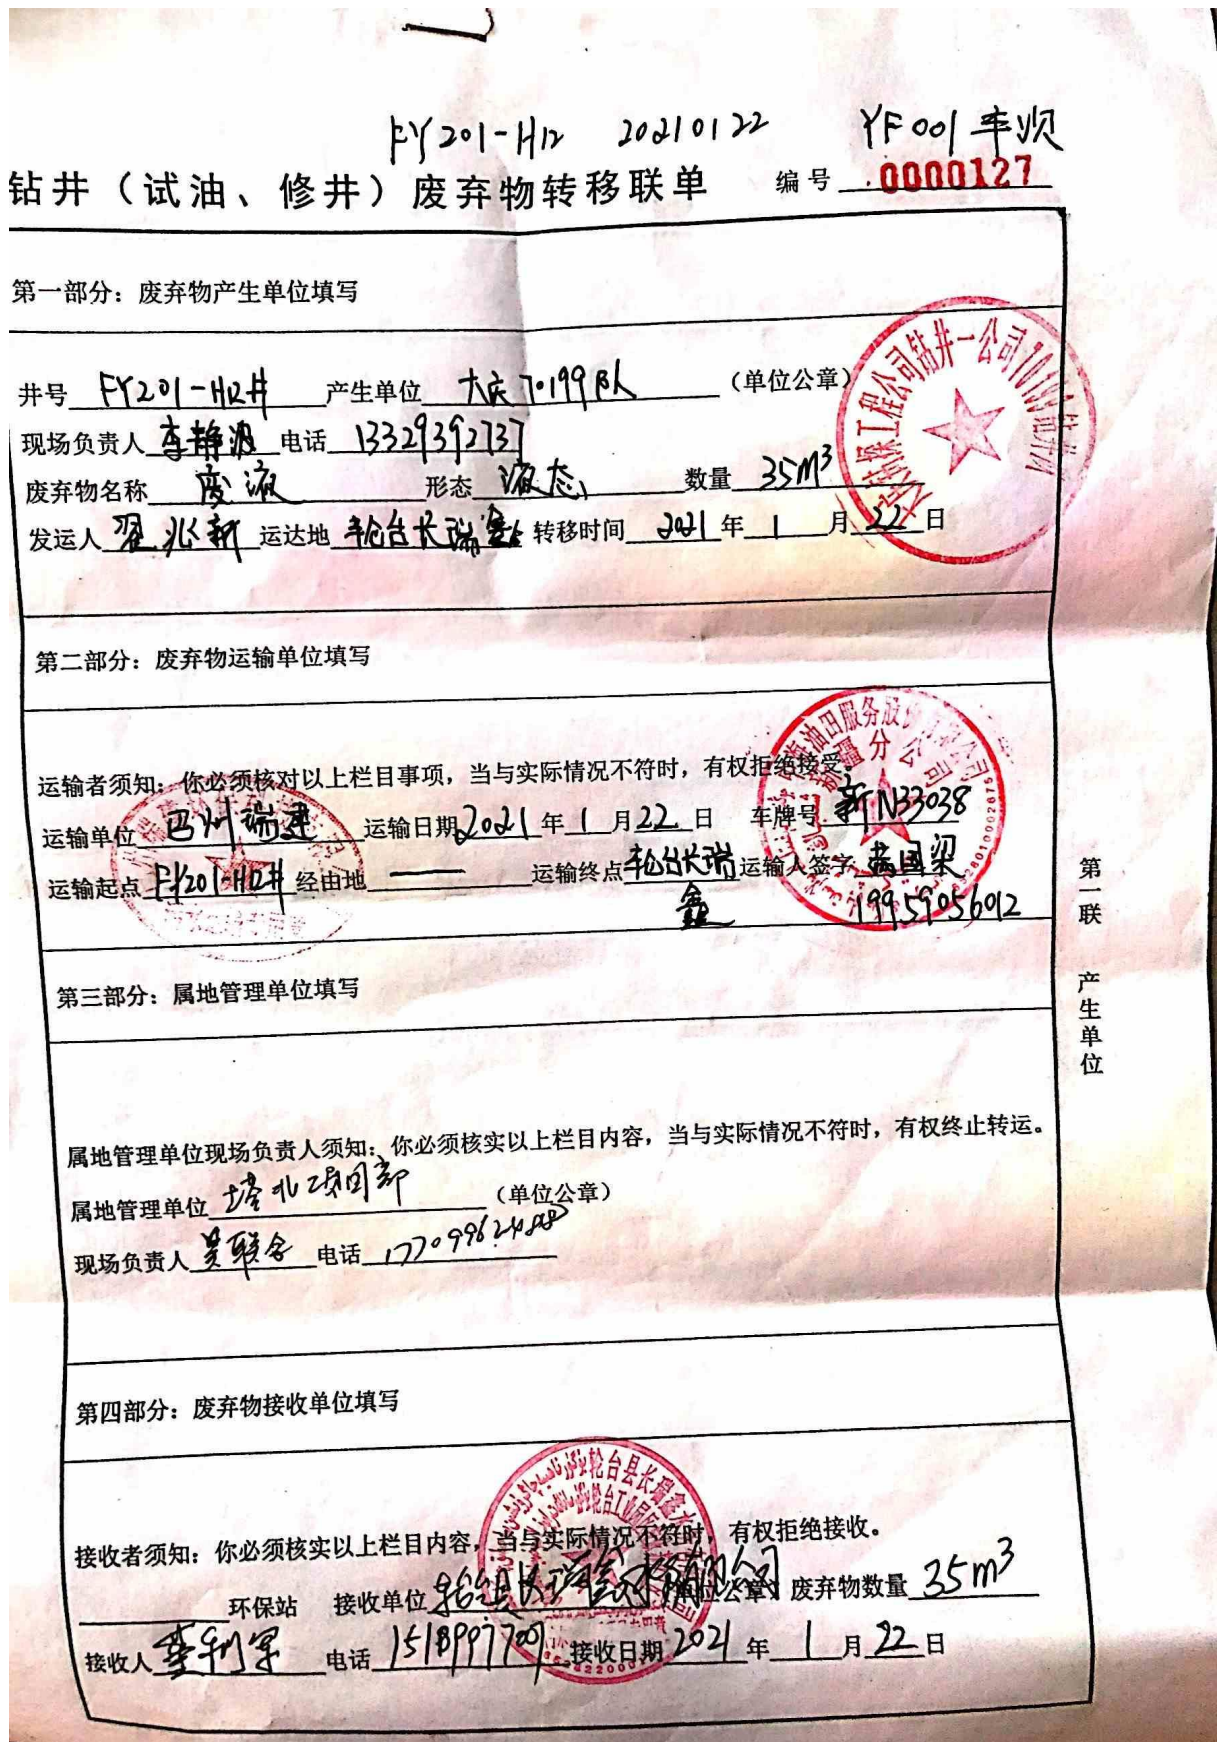 FY201-H12 20210122 YF001车次
钻井（试油、修井）废弃物转移联单 编号 0000127
第一部分：废弃物产生单位填写
井号 FY201-H12井 产生单位 大庆70199队 （单位公章）
现场负责人 李静波 电话 13329392737
废弃物名称 废液 形态 液态 数量 35m³
发运人 翟兆新 运达地 轮台长瑞鑫 转移时间 2021 年 1 月 22 日
第二部分：废弃物运输单位填写
运输者须知：你必须核对以上栏目事项，当与实际情况不符时，有权拒绝接受。
运输单位 巴州瑞建 运输日期 2021 年 1 月 22 日 车牌号 新N33038
运输起点 FY201-H12井 经由地 —— 运输终点 轮台长瑞鑫 运输人签字 国梁
19959056012
第三部分：属地管理单位填写
属地管理单位现场负责人须知：你必须核实以上栏目内容，当与实际情况不符时，有权终止转运。
属地管理单位 塔北项目部 （单位公章）
现场负责人 电话
第四部分：废弃物接收单位填写
接收者须知：你必须核实以上栏目内容，当与实际情况不符时，有权拒绝接收。
环保站 接收单位 轮台县长瑞鑫水务有限公司 （单位公章） 废弃物数量 35m³
接收人 电话 15189977001 接收日期 2021 年 1 月 22 日
第一联 产生单位